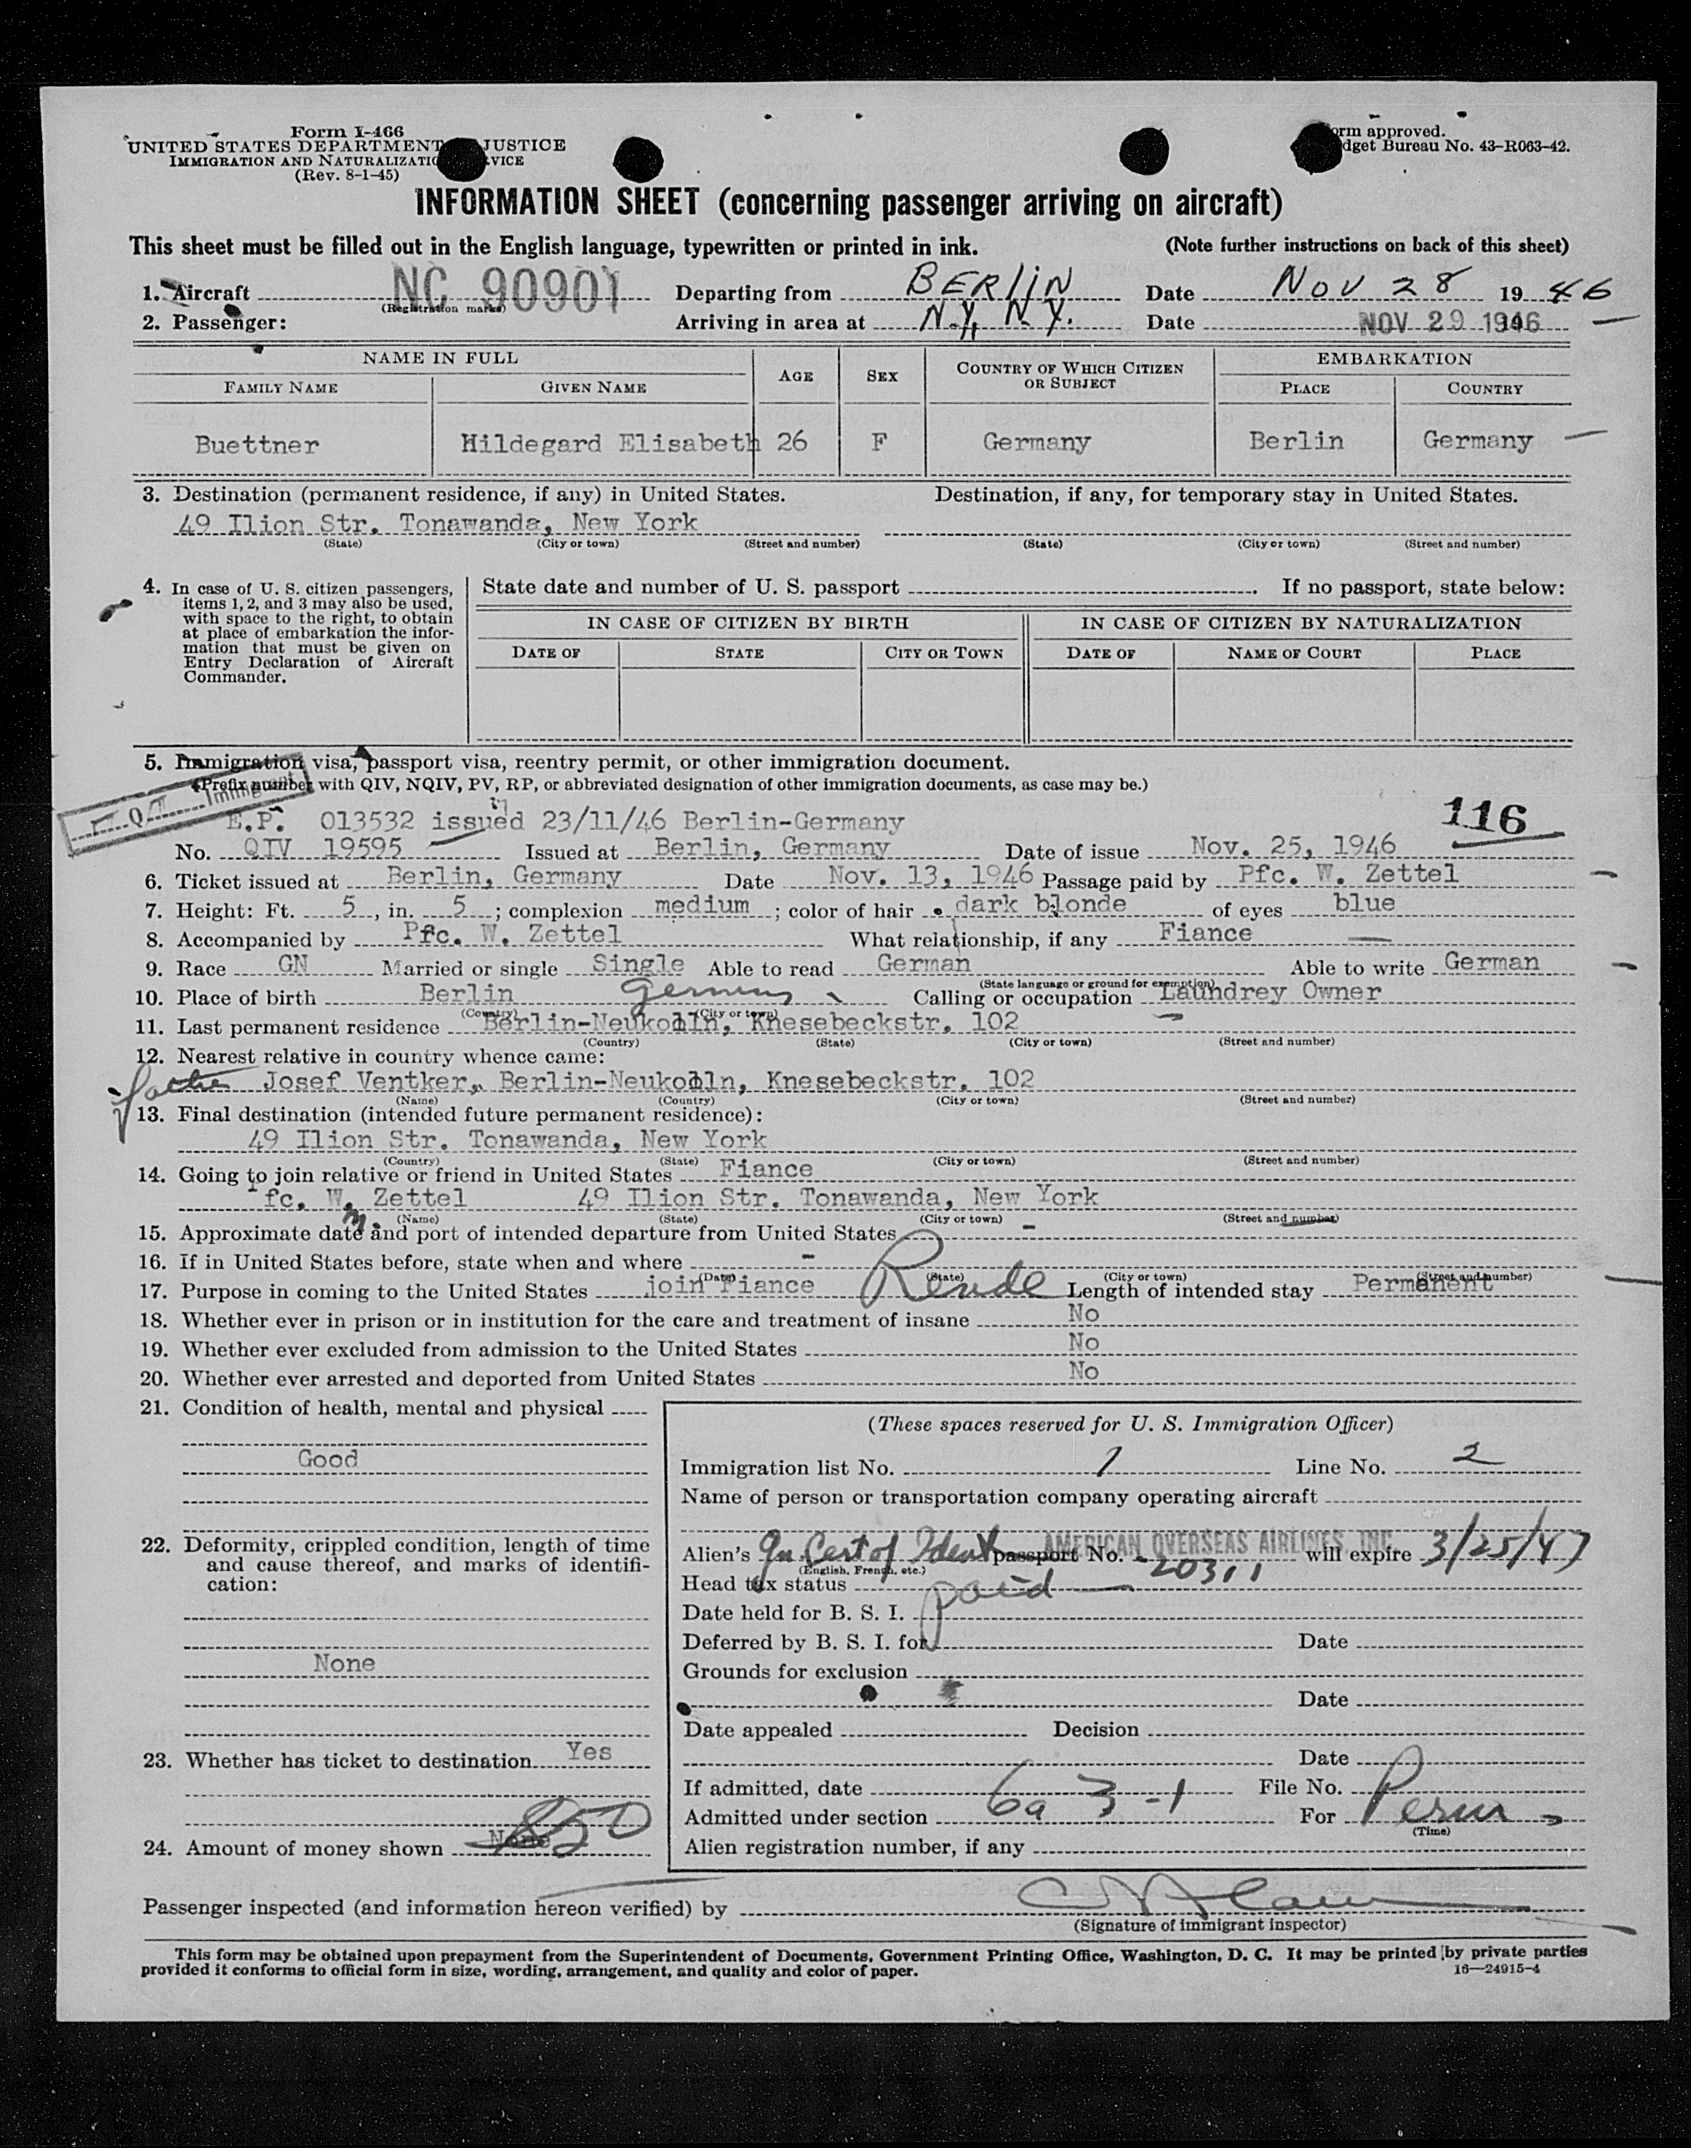 Form I-466
UNITED STATES DEPARTMENT JUSTICE
IMMIGRATION AND NATURALIZATIO VICE
(Rev. 8-1-45)
orm approved.
dget Bureau No. 43-R063-42.
INFORMATION SHEET (concerning passenger arriving on aircraft)
This sheet must be filled out in the English language, typewritten or printed in ink. (Note further instructions on back of this sheet)
1. Aircraft NC 90901 Departing from BERLIN Date NOV 28 19 46
(Registration marks)
2. Passenger: Arriving in area at N.Y. N.Y. Date NOV 29 1946
NAME IN FULL AGE SEX COUNTRY OF WHICH CITIZEN OR SUBJECT EMBARKATION
FAMILY NAME GIVEN NAME PLACE COUNTRY
Buettner Hildegard Elisabeth 26 F Germany Berlin Germany
3. Destination (permanent residence, if any) in United States. Destination, if any, for temporary stay in United States.
49 Ilion Str. Tonawanda, New York
(State) (City or town) (Street and number) (State) (City or town) (Street and number)
4. In case of U. S. citizen passengers, items 1, 2, and 3 may also be used, with space to the right, to obtain at place of embarkation the information that must be given on Entry Declaration of Aircraft Commander.
State date and number of U. S. passport . If no passport, state below:
IN CASE OF CITIZEN BY BIRTH IN CASE OF CITIZEN BY NATURALIZATION
DATE OF STATE CITY OR TOWN DATE OF NAME OF COURT PLACE
5. Immigration visa, passport visa, reentry permit, or other immigration document.
(Prefix number with QIV, NQIV, PV, RP, or abbreviated designation of other immigration documents, as case may be.)
Q Immigrant
E.P. 013532 issued 23/11/46 Berlin-Germany 116
No. QIV 19595 Issued at Berlin, Germany Date of issue Nov. 25, 1946
6. Ticket issued at Berlin, Germany Date Nov. 13, 1946 Passage paid by Pfc. W. Zettel
7. Height: Ft. 5, in. 5; complexion medium; color of hair dark blonde of eyes blue
8. Accompanied by Pfc. W. Zettel What relationship, if any Fiance
9. Race GN Married or single Single Able to read German Able to write German
(State language or ground for exemption)
10. Place of birth Berlin Germany Calling or occupation Laundrey Owner
(Country) (City or town)
11. Last permanent residence Berlin-Neukolln, Knesebeckstr. 102
(Country) (State) (City or town) (Street and number)
12. Nearest relative in country whence came:
father Josef Ventker, Berlin-Neukolln, Knesebeckstr. 102
(Name) (Country) (City or town) (Street and number)
13. Final destination (intended future permanent residence):
49 Ilion Str. Tonawanda, New York
(Country) (State) (City or town) (Street and number)
14. Going to join relative or friend in United States Fiance
Pfc. W. Zettel 49 Ilion Str. Tonawanda, New York
(Name) (State) (City or town) (Street and number)
15. Approximate date and port of intended departure from United States -
16. If in United States before, state when and where -
(Date) (State) (City or town) (Street and number)
17. Purpose in coming to the United States join Fiance Reside Length of intended stay Permanent
18. Whether ever in prison or in institution for the care and treatment of insane No
19. Whether ever excluded from admission to the United States No
20. Whether ever arrested and deported from United States No
21. Condition of health, mental and physical
Good
22. Deformity, crippled condition, length of time and cause thereof, and marks of identification:
None
23. Whether has ticket to destination Yes
24. Amount of money shown None 850
(These spaces reserved for U. S. Immigration Officer)
Immigration list No. 1 Line No. 2
Name of person or transportation company operating aircraft
AMERICAN OVERSEAS AIRLINES, INC.
Alien's Cert of Ident passport No. 20311 will expire 3/25/47
(English, French, etc.)
Head tax status paid
Date held for B. S. I.
Deferred by B. S. I. for Date
Grounds for exclusion
Date
Date appealed Decision
Date
If admitted, date File No.
Admitted under section 6a 3-1 For Perm
(Time)
Alien registration number, if any
Passenger inspected (and information hereon verified) by
(Signature of immigrant inspector)
This form may be obtained upon prepayment from the Superintendent of Documents, Government Printing Office, Washington, D. C. It may be printed by private parties
provided it conforms to official form in size, wording, arrangement, and quality and color of paper. 16—24915-4